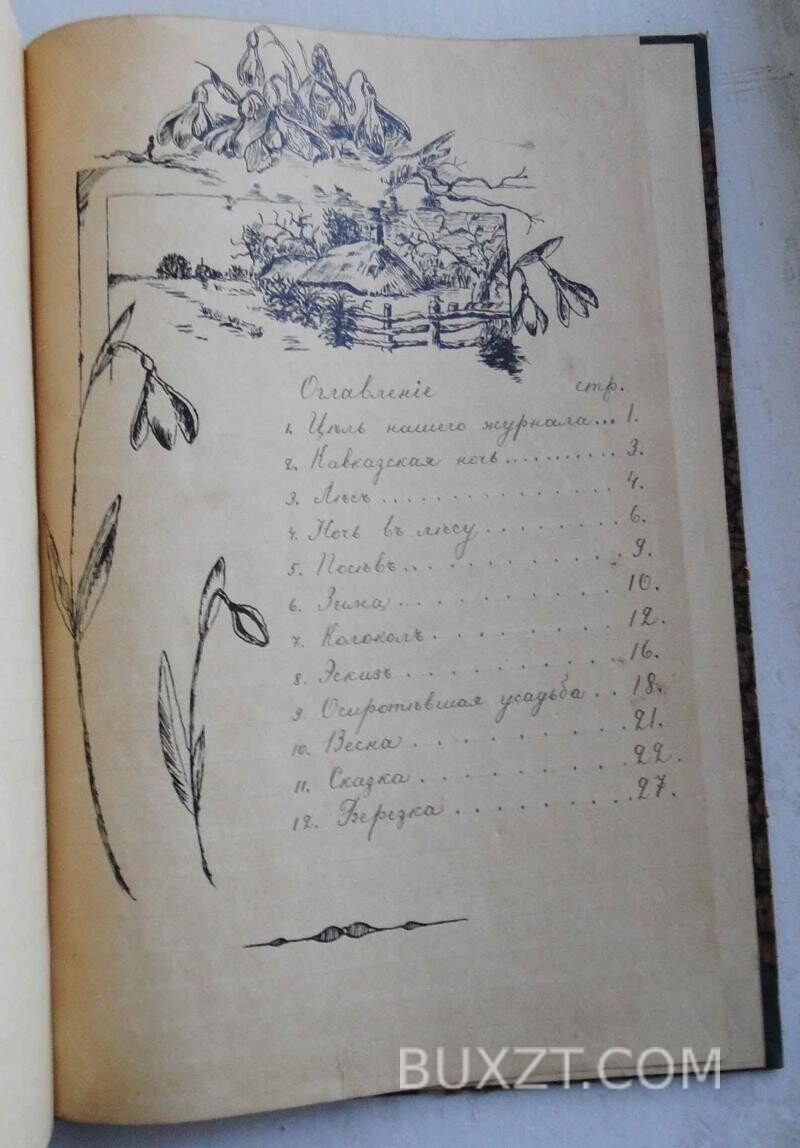 Оглавленіе стр.
1. Цѣль нашего журнала... 1.
2. Кавказская ночь.......... 3.
3. Лѣсъ................ 4.
4. Ночь въ лѣсу........ 6.
5. Посѣвъ.............. 9.
6. Зима............ 10.
7. Колоколъ.......... 12.
8. Эскизъ........... 16.
9. Осиротѣвшая усадьба.. 18.
10. Весна............ 21.
11. Сказка........... 22.
12. Березка.......... 27.
BUXZT.COM